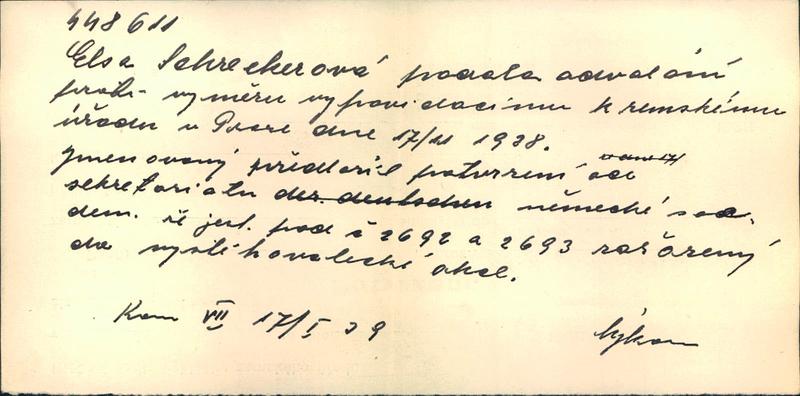 448611
Elsa Schreckerová podala odvolání
proti výměru vypovídacímu k zemskému
úřadu v Praze dne 17/11 1938.
Jmenovaný předložil potvrzení od
sekretariatu der deutschen německé soc.
dem. že jest. pod č 2692 a 2693 zařazený
do vystěhovalecké akce.
Kom VII 17/I 39